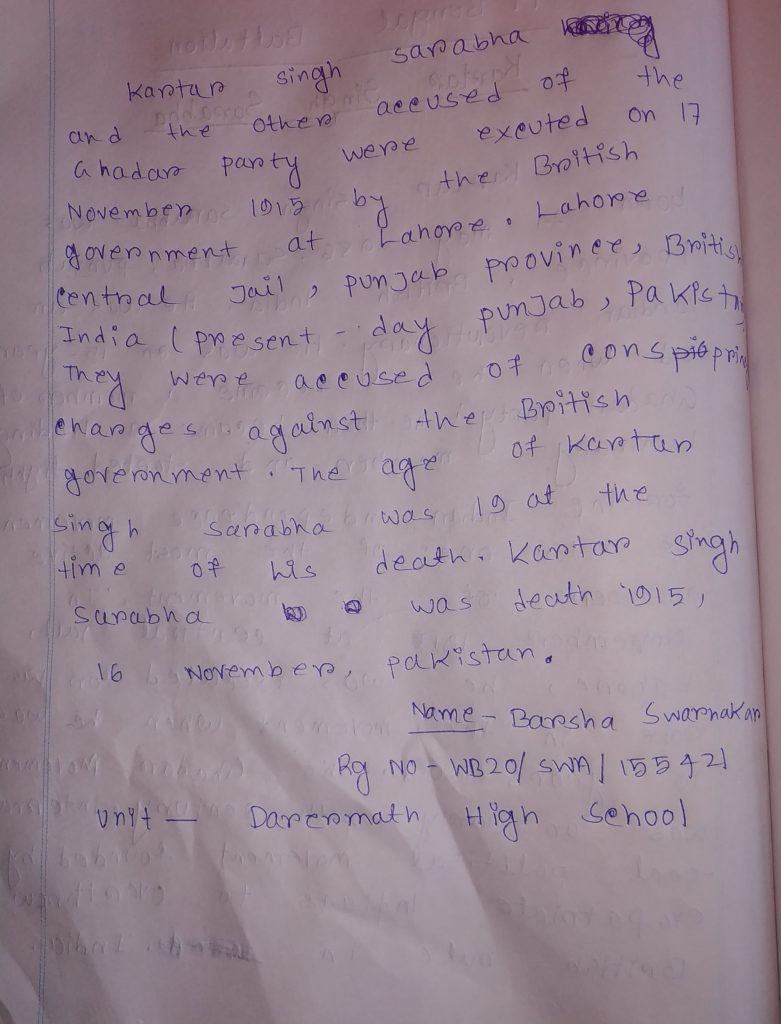 Kartar singh sarabha
and the other accused of the
Ghadar party were exeuted on 17
November 1915 by the British
government at Lahore. Lahore
central Jail, punjab province, British
India (present - day punjab, Pakistan
They were accused of
charges against the British
government. The age of Kartar
singh sarabha was 19 at the
time of his death. Kartar singh
sarabha was death 1915,
16 November, pakistan.
Name - Barsha Swarnakar
Rg No - WB20/SWA/155421
Unit - Darermath High School